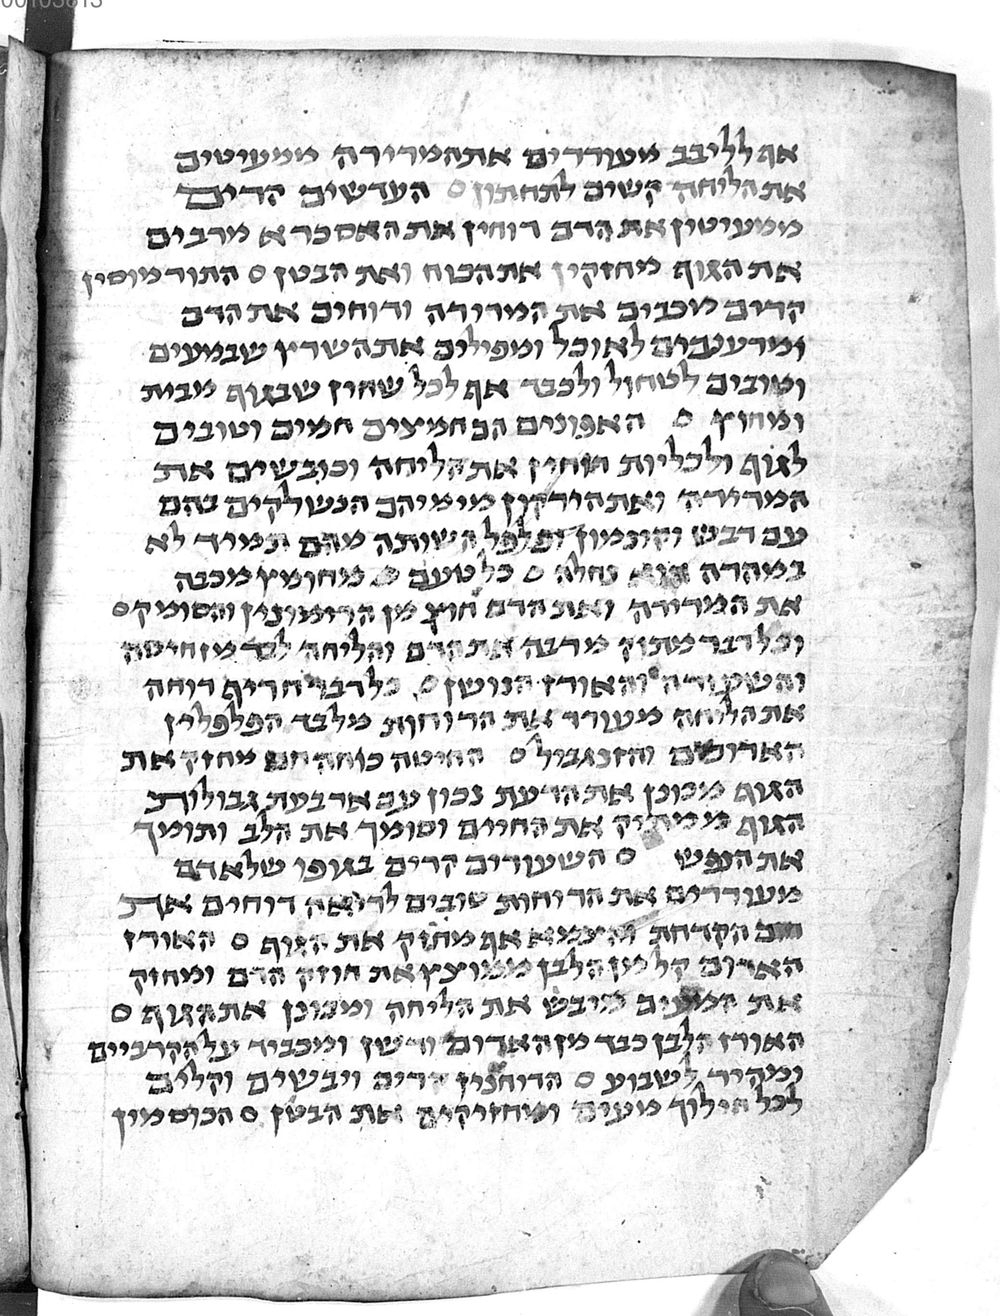 00105813
אף לליבב מעוררים את המרירה ממעיטים
את הליחה קשים לתחתון ס העדשים הדים
ממעיטין את הדם דוחין את האסכרא מרבים
את הגוף מחזקין את הכוח ואת הבטן ס התורמוסין
קרים מכבים את המרירה ודוחים את הדם
ומרעננים לאוכל ומפילים את השרץ שבמעים
וטובים לטחול ולכבד אף לכל שחין שבגוף מבית
ומחוץ ס האפונים הם חמיצים חמים וטובים
לגוף ולכליות דוחין את הליחה וכובשים את
המרירה ואת הירקון מימיהם הנשלקים בהם
עם דבש וקינמון ופלפל השותה מהם תמיד לא
במהרה הוא נחלה ס כל טעם מחומץ מכבה
את המרירה ואת הדם חוץ מן הרימונין והסומק ס
וכל דבר מתוק מרבה את הדם והליחה לבד מן
והאורז הנושן ס כל דבר חריף דוחה
את הליחה מעורר את הרוחות מלבד הפלפלין
הארוכים והזנגביל ס החיטה כוחה חם מחזק את
הגוף מכונן את הדעת נכון עם ארבעת גבולות
הגוף ממתיק את החיים וסומך את הלב ותומך
את הנפש ס השעורים קרים בגופו שלאדם
מעוררים את הרוחות טובים לריאה דוחים את
חום הקדחת והצמא אף מחזק את הגוף ס האורז
האדום קל מן הלבן ממוצץ את חוזק הדם ומחזק
את המעים מיבש את הליחה ומכונן את הגוף ס
האורז הלבן כבד מן האדום ודשן ומכביד על הקרביים
ומהיר לשבוע ס הדוחנין קרים ויבשים וקלים
לכל הילוך מעים ומחזיקים את הבטן ס הכוסמין